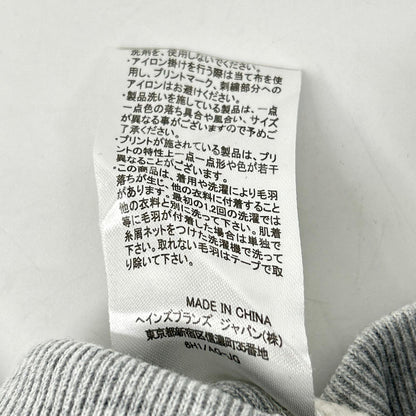 洗剤を、使用しないでください。
・アイロン掛けを行う際は当て布を使
用し、プリントマーク、刺繍部分への
アイロンはお避けください。
・製品洗いを施している製品は、一点
一点色の落ち具合や風合い、サイズ
が異なる事がございますので予めご
了承ください。
・プリントが施されている製品は、プリ
ントの特性上一点一点形や色が若干
異なることがございます。
・この商品は、着用や洗濯により毛羽
落ちが生じ、他の衣料に付着すること
があります。最初の1,2回の洗濯では
他の衣料と別に洗って下さい。肌着
等に毛羽が付着した場合は単独で
糸屑ネットをつけた洗濯機で洗って
下さい。取れない毛羽はテープで取
り除いて下さい。
MADE IN CHINA
ヘインズブランズ ジャパン(株)
東京都新宿区信濃町35番地